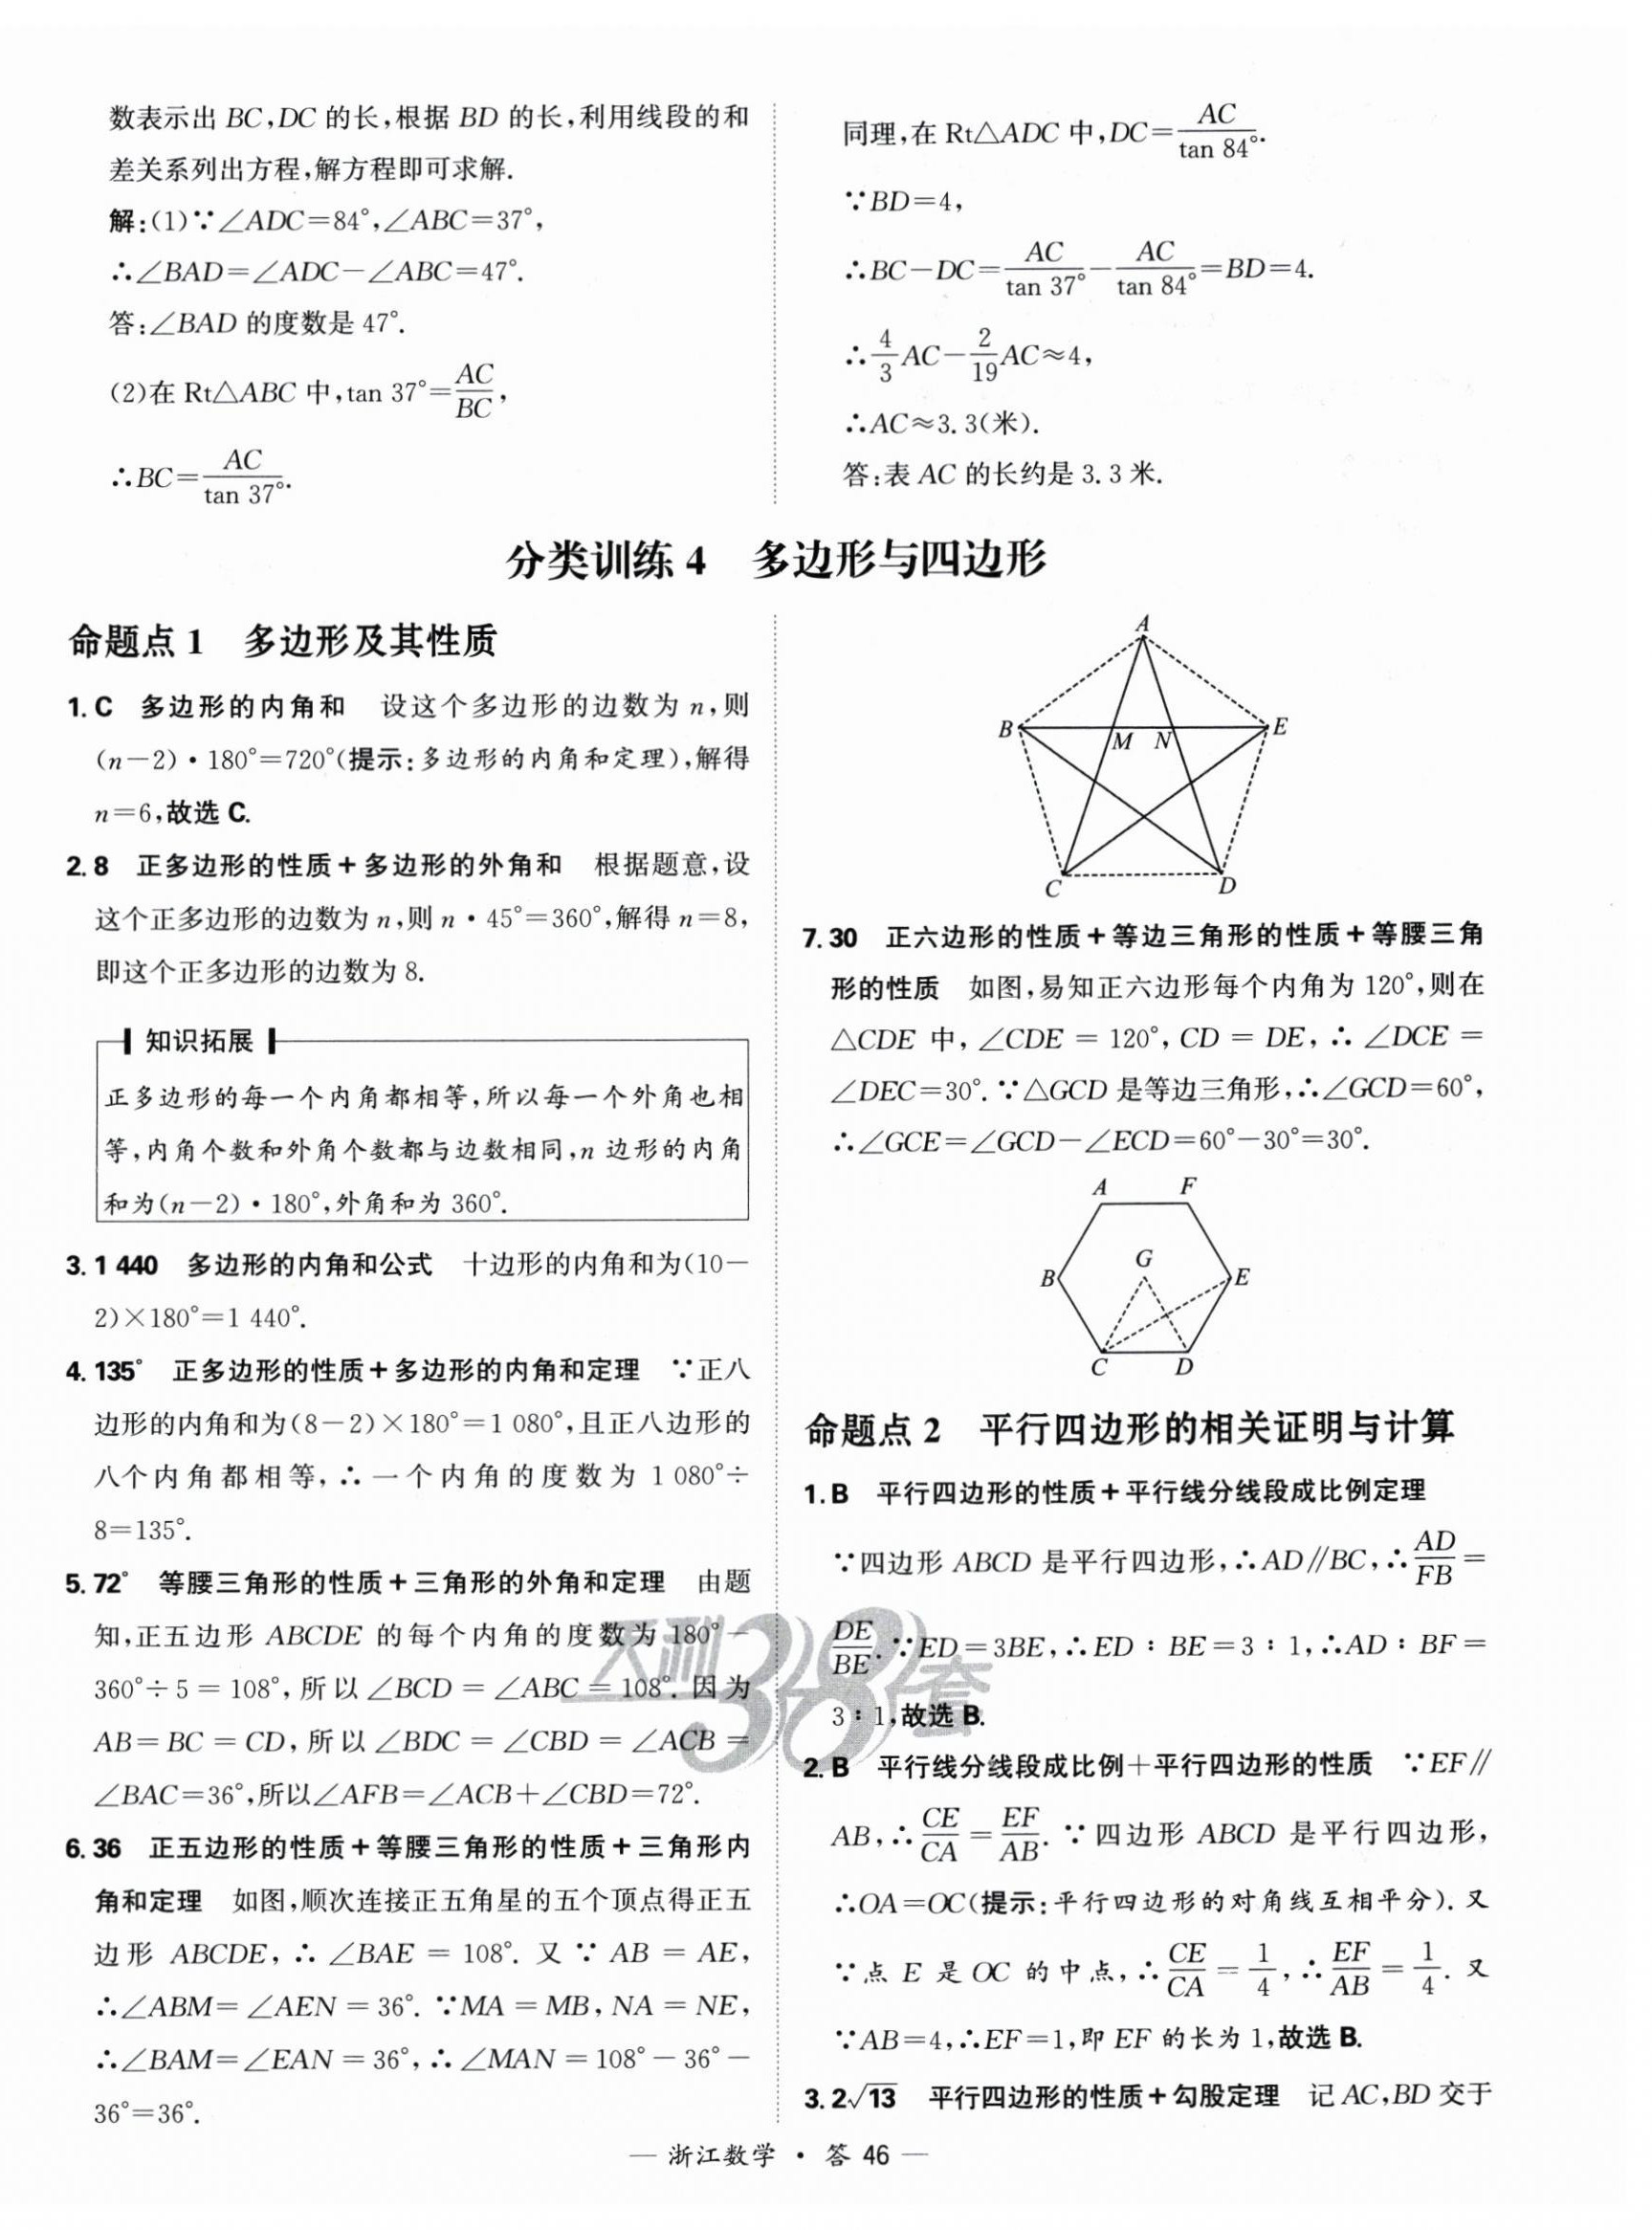 数表示出 BC,DC 的长,根据 BD 的长,利用线段的和
差关系列出方程,解方程即可求解.
解:(1)∵∠ADC=84°,∠ABC=37°,
∴∠BAD=∠ADC-∠ABC=47°.
答:∠BAD 的度数是 47°.
(2)在 Rt△ABC 中,tan 37°=AC/BC,
∴BC=AC/tan 37°.
同理,在 Rt△ADC 中,DC=AC/tan 84°.
∵BD=4,
∴BC-DC=AC/tan 37°-AC/tan 84°=BD=4.
∴4/3 AC-2/19 AC≈4,
∴AC≈3.3(米).
答:表 AC 的长约是 3.3 米.
分类训练 4 多边形与四边形
命题点 1 多边形及其性质
1. C 多边形的内角和 设这个多边形的边数为 n,则
(n-2)·180°=720°(提示:多边形的内角和定理),解得
n=6,故选 C.
2. 8 正多边形的性质+多边形的外角和 根据题意,设
这个正多边形的边数为 n,则 n·45°=360°,解得 n=8,
即这个正多边形的边数为 8.
知识拓展
正多边形的每一个内角都相等,所以每一个外角也相
等,内角个数和外角个数都与边数相同,n 边形的内角
和为(n-2)·180°,外角和为 360°.
3. 1 440 多边形的内角和公式 十边形的内角和为(10-
2)×180°=1 440°.
4. 135° 正多边形的性质+多边形的内角和定理 ∵正八
边形的内角和为(8-2)×180°=1 080°,且正八边形的
八个内角都相等,∴一个内角的度数为 1 080°÷
8=135°.
5. 72° 等腰三角形的性质+三角形的外角和定理 由题
知,正五边形 ABCDE 的每个内角的度数为 180°-
360°÷5=108°,所以∠BCD=∠ABC=108°.因为
AB=BC=CD,所以∠BDC=∠CBD=∠ACB=
∠BAC=36°,所以∠AFB=∠ACB+∠CBD=72°.
6. 36 正五边形的性质+等腰三角形的性质+三角形内
角和定理 如图,顺次连接正五角星的五个顶点得正五
边形 ABCDE,∴∠BAE=108°.又∵AB=AE,
∴∠ABM=∠AEN=36°.∵MA=MB,NA=NE,
∴∠BAM=∠EAN=36°,∴∠MAN=108°-36°-
36°=36°.
A
B
E
M N
C
D
7. 30 正六边形的性质+等边三角形的性质+等腰三角
形的性质 如图,易知正六边形每个内角为 120°,则在
△CDE 中,∠CDE=120°,CD=DE,∴∠DCE=
∠DEC=30°.∵△GCD 是等边三角形,∴∠GCD=60°,
∴∠GCE=∠GCD-∠ECD=60°-30°=30°.
A F
G
B E
C D
命题点 2 平行四边形的相关证明与计算
1. B 平行四边形的性质+平行线分线段成比例定理
∵四边形 ABCD 是平行四边形,∴AD∥BC,∴AD/FB=
DE/BE.∵ED=3BE,∴ED∶BE=3∶1,∴AD∶BF=
3∶1,故选 B.
2. B 平行线分线段成比例+平行四边形的性质 ∵EF∥
AB,∴CE/CA=EF/AB.∵四边形 ABCD 是平行四边形,
∴OA=OC(提示:平行四边形的对角线互相平分).又
∵点 E 是 OC 的中点,∴CE/CA=1/4,∴EF/AB=1/4.又
∵AB=4,∴EF=1,即 EF 的长为 1,故选 B.
3. 2√13 平行四边形的性质+勾股定理 记 AC,BD 交于
天利38套
— 浙江数学·答 46 —